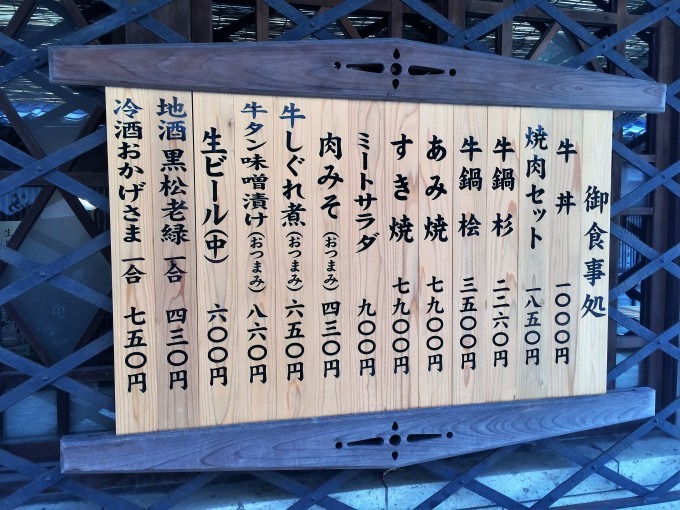 御食事処
牛丼 一〇〇〇円
焼肉セット 一八五〇円
牛鍋 杉 二二六〇円
牛鍋 桧 三五〇〇円
あみ焼 七九〇〇円
すき焼 七九〇〇円
ミートサラダ 九〇〇円
肉みそ(おつまみ) 四三〇円
牛しぐれ煮(おつまみ) 六五〇円
牛タン味噌漬け(おつまみ) 八六〇円
生ビール(中) 六〇〇円
地酒 黒松老緑 一合 四三〇円
冷酒おかげさま 一合 七五〇円